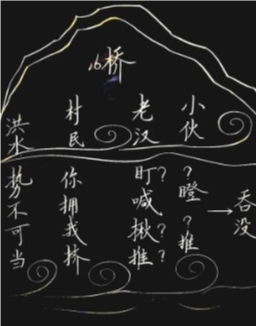 16桥
洪水
村民
老汉
小伙
势不可当
你拥我挤
盯?喊揪?推?
?瞪?推
→吞没